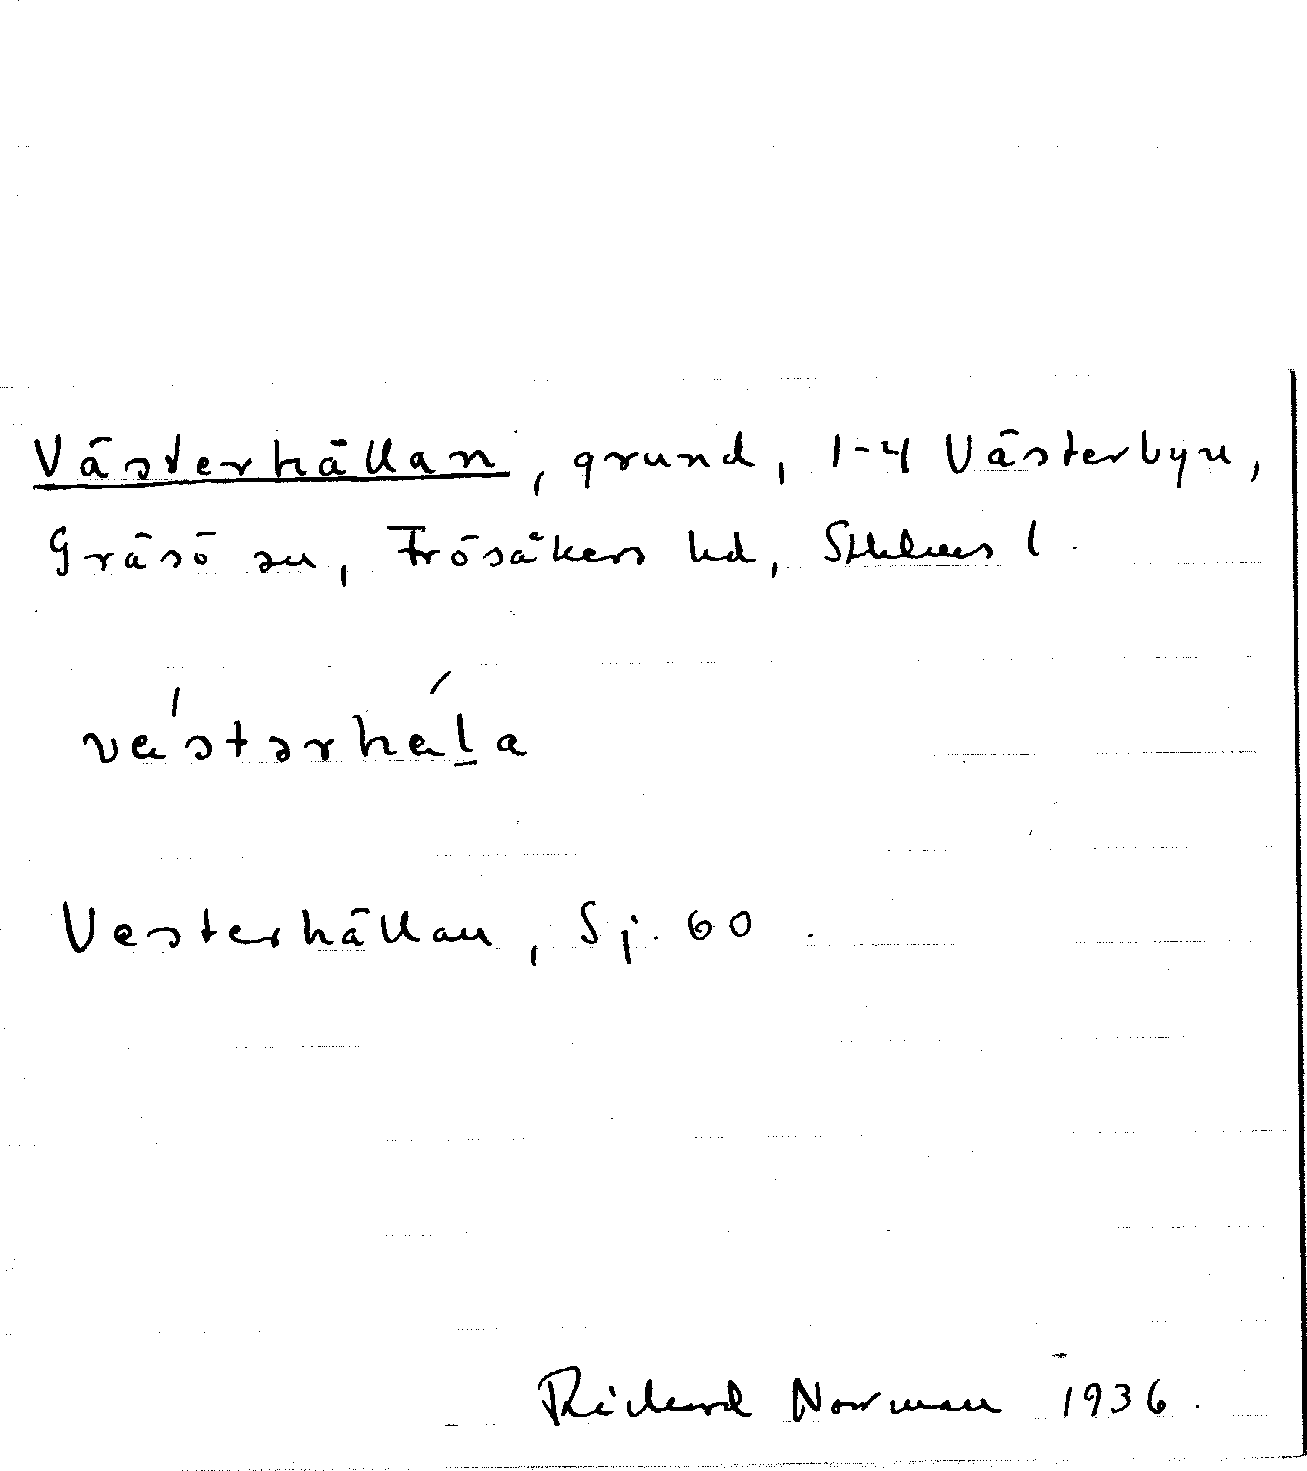 Västerhällan, grund, 1-4 Västerbyn,
Gräsö sn, Frösåkers hd, Sthlms l.
væ´stərhæ´l̲a
Vesterhällan, Sj. 60.
Rickard Norman 1936.